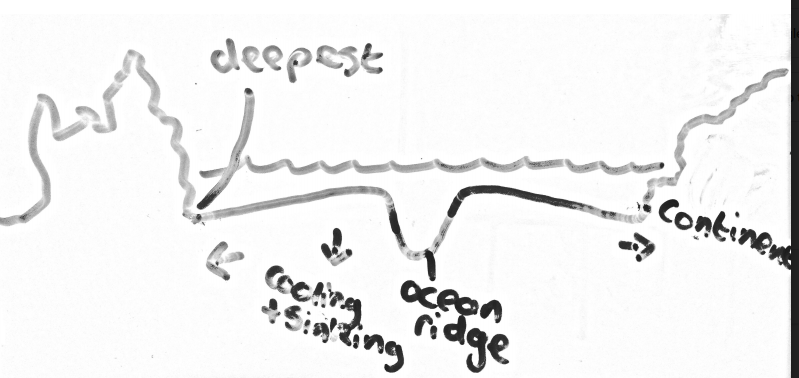 deepest
Continent
Cooling
+Sinking
ocean
ridge